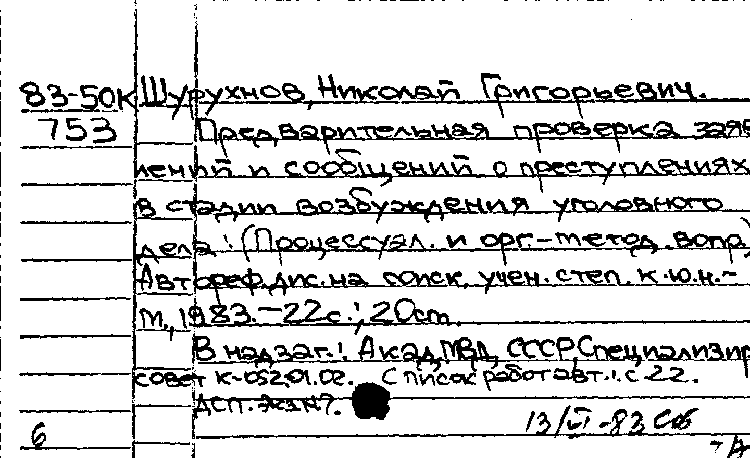 83-50к Шурухнов, Николай Григорьевич.
753 Предварительная проверка заяв
лений и сообщений о преступлениях
в стадии возбуждения уголовного
дела: (Процессуал. и орг-метод. вопр)
Автореф. дис. на соиск. учен. степ. к.ю.н.-
М., 1983.-22с.; 20см.
В надзаг.: Акад. МВД СССР, Специализир
совет К-052.01.02. Список работ авт.: с.22.
ДСП. Экз №7.
13/VI-83
6